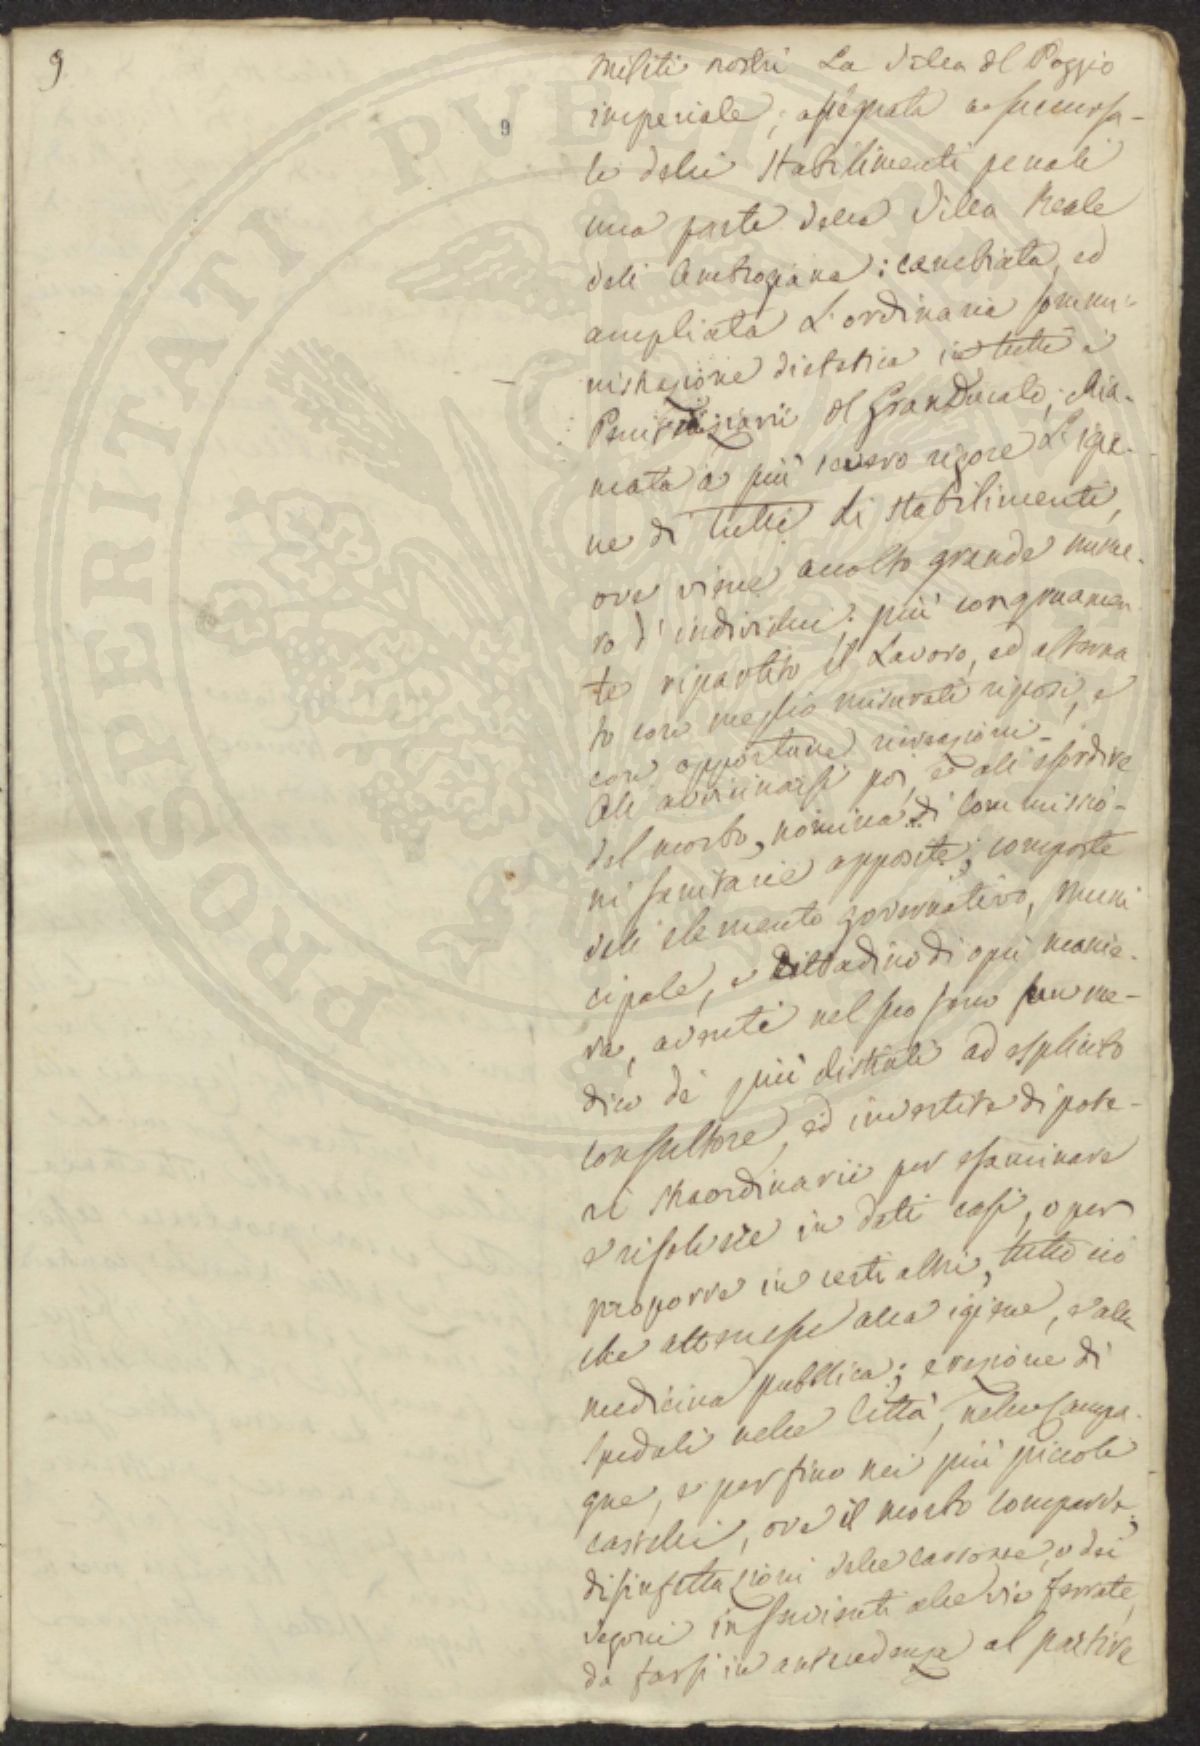 9
9
militi nostri La Villa del Poggio
imperiale; assegnata a succursa-
le delli Stabilimenti penali
una parte della Villa Reale
dell Ambrogiana; cambiata, ed
ampliata L'ordinaria sommi-
nistrazione dietetica in tutti i
Penitenziarii del GranDucato; chia-
mata a più severo rigore L'igie-
ne di tutti li stabilimenti,
ove viene accolto grande nume-
ro d'individui; più congruamen
te ripartito il Lavoro, ed alterna
to con meglio misurati riposi, e
con opportune ricreazioni-
All avvicinarsi poi, e all esordire
del morbo, nomina di Commissio-
ni sanitarie apposite; composte
dell elemento governativo, Muni
cipale, e Cittadino di ogni manie-
ra, aventi nel suo seno un me-
dico de' più distinti ad esplicito
consultore, ed investite di pote-
ri straordinarii per esaminare
e risolvere in dati casi, o per
proporre in certi altri, tutto ciò
che attenesse alla igiene, e alla
medicina pubblica; erezione di
spedali nelle Città, nelle Campa-
gne, e perfino nei più piccoli
castelli, ove il morbo comparve;
disinfettazioni delle carrozze, o dei
vagoni inservienti alle vie ferrate,
da farsi in antecedenza al partire
PROSPERITATI PVBLICAE